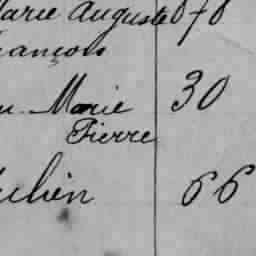 Marie Auguste 878
François
Marie 30
Pierre
Julien 66